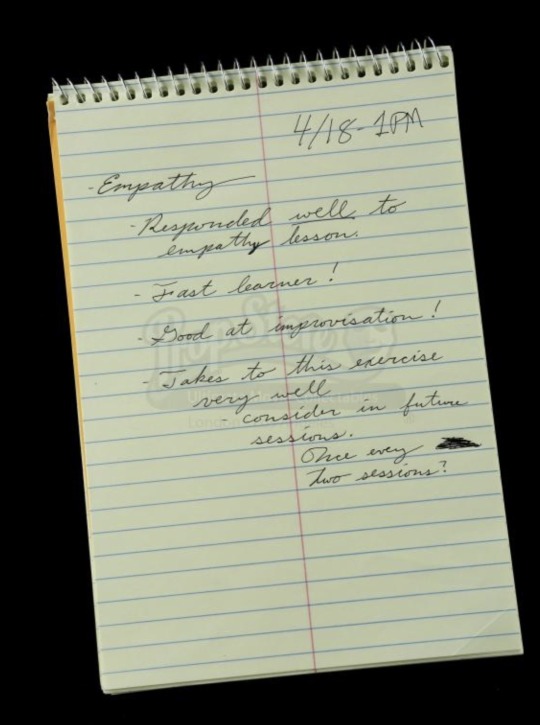 4/18-1PM
-Empathy
-Responded well to
empathy lesson.
-Fast learner!
-Good at improvisation!
-Takes to this exercise
very well
consider in future
sessions.
Once every
two sessions?